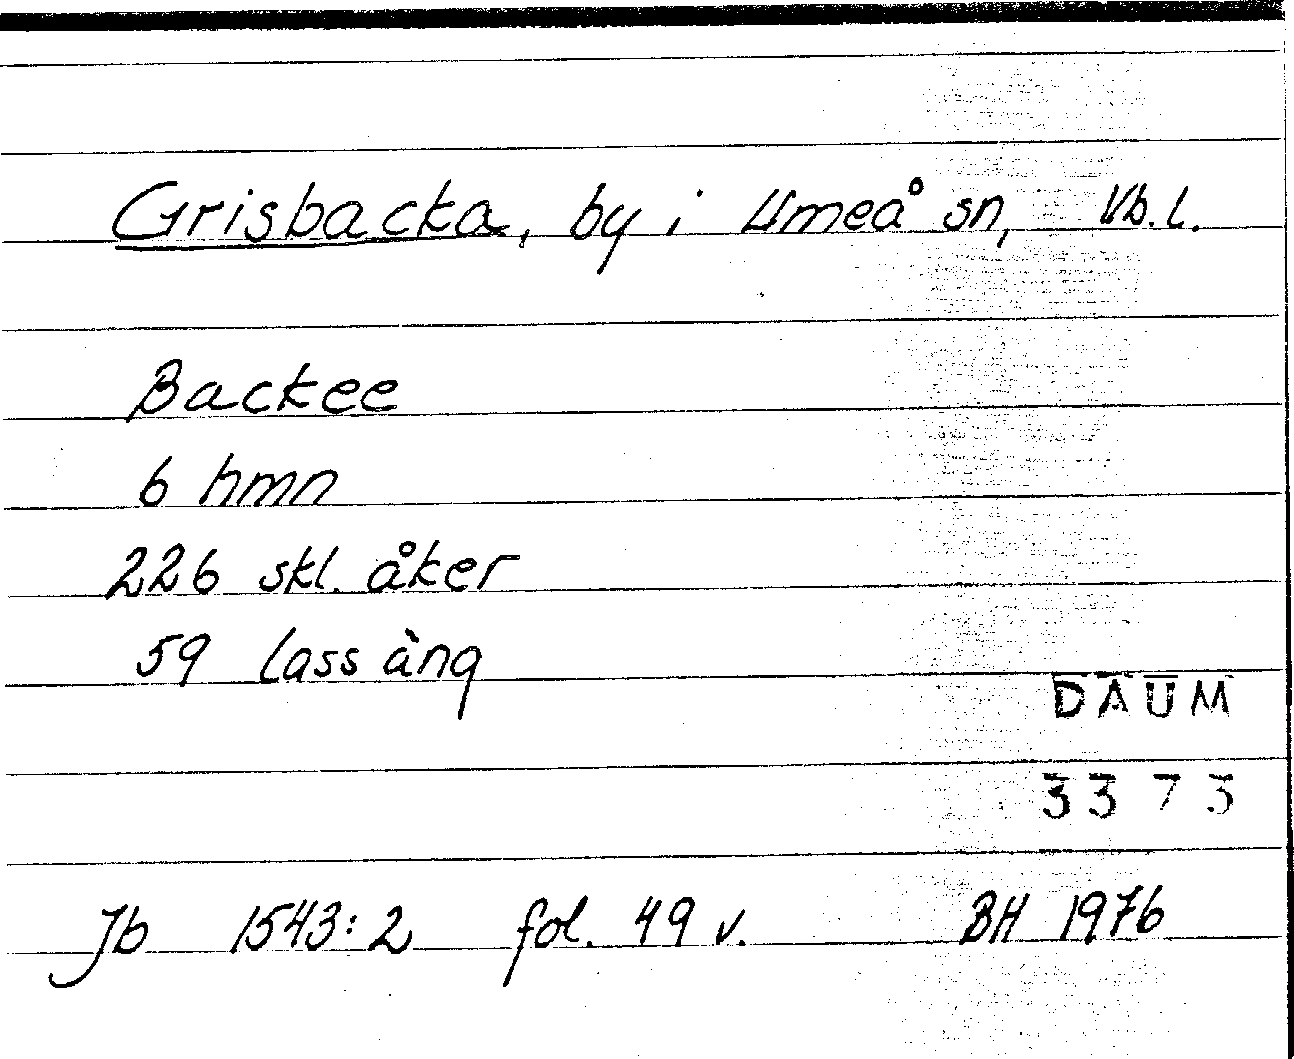 Grisbacka, by i Umeå sn, Vb.l.
Backee
6 hmn
226 skl. åker
59 lass äng
DAUM
3373
Jb 1543:2 fol. 49 v. BH 1976